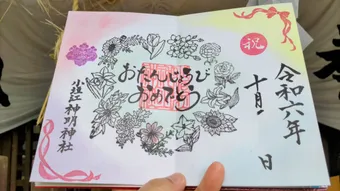 令和六年
十月 日
祝
おたんじょうび
おめでとう
小垣江神明神社